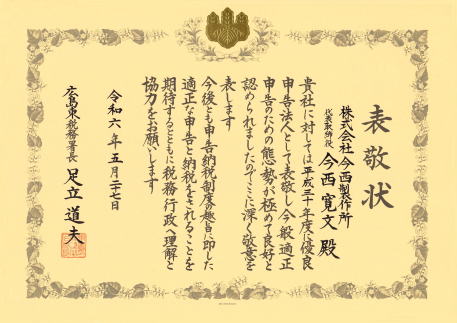 表敬状
株式会社今西製作所
代表取締役 今西寛文 殿
貴社に対しては平成三十年度に優良
申告法人として表敬し今般適正
申告のための態勢が極めて良好と
認められましたのでここに深く敬意を
表します
今後とも申告納税制度の趣旨に即した
適正な申告と納税をされることを
期待するとともに税務行政へ理解と
協力をお願いします
令和六年五月二十七日
広島東税務署長 足立道夫